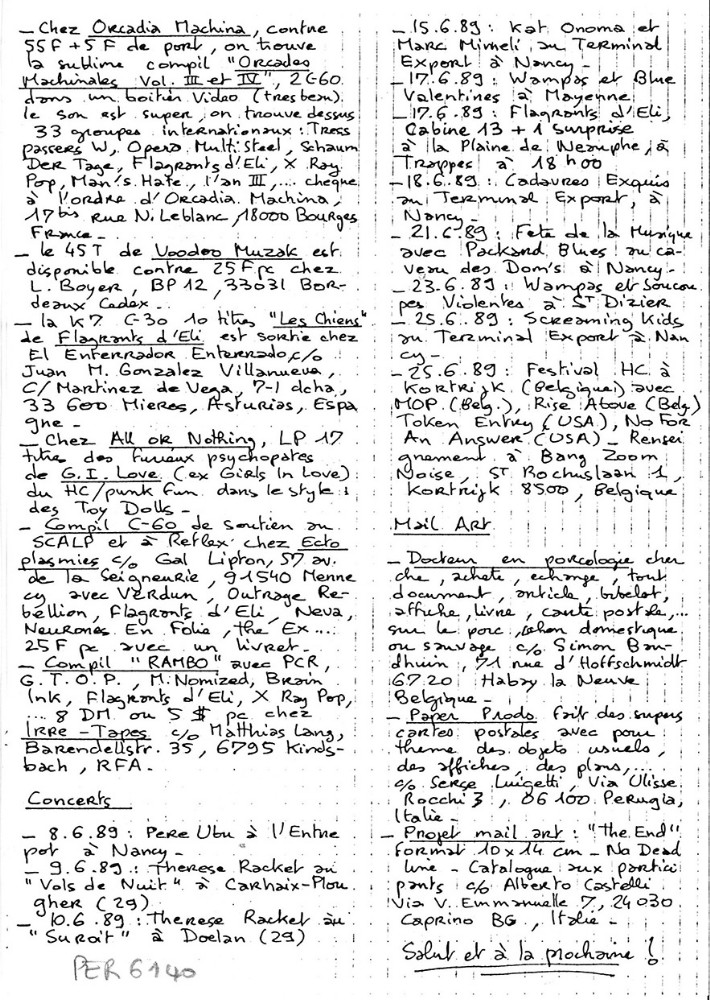 _ Chez Orcadia Machina, contre
55F + 5F de port, on trouve
la sublime compil "Orcades
Machinales Vol. III et IV", 2C60
dans un boitier Video (tres beau)
le son est super, on trouve dessus
33 groupes internationaux : Tress
passers W, Opera Multi Steel, Schaum
Der Tage, Flagrants d'Eli, X Ray
Pop, Man's Hate, l'an III,... cheque
à l'ordre d'Orcadia Machina,
17 bis rue N. Leblanc, 18000 Bourges
France -
_ le 45T de Voodoo Muzak est
disponible contre 25F pc chez
L. Boyer, BP 12, 33031 Bor-
deaux Cedex.
_ la K7 C-30 10 titres "Les Chiens"
de Flagrants d'Eli est sortie chez
El Enterrador Enterrado, c/o
Juan M. Gonzalez Villanueva,
C/ Martinez de Vega, 7-1 dcha,
33 600 Mieres, Asturias, Espa
gne -
_ Chez All or Nothing, LP 17
titres des furieux psychopates
de G.I. Love (ex Girls In Love)
du HC/punk fun dans le style
des Toy Dolls -
_ Compil C-60 de soutien au
SCALP et à Reflex chez Ecto
plasmies c/o Gal Lipton, 57 av.
de la Seigneurie, 91540 Menne
cy avec Verdun, Outrage Re-
bellion, Flagrants d'Eli, Neva,
Neurones En Folie, the Ex ...
25 F pc avec un livret -
_ Compil "RAMBO" avec PCR,
G.T.O.P., M. Nomized, Brain
Ink, Flagrants d'Eli, X Ray Pop,
... 8 DM ou 5 $ pc chez
Irre-Tapes c/o Matthias Lang,
Barendellstr. 35, 6795 Kinds-
bach, RFA.
Concerts
_ 8.6.89 : Pere Ubu à l'Entre
pot à Nancy -
_ 9.6.89 : Therese Racket au
"Vols de Nuit" à Carhaix-Plou
gher (29)
_ 10.6.89 : Therese Racket au
"Suroit" à Doelan (29)
PER 6140
_ 15.6.89 : Kat Onoma et
Marc Minneli au Terminal
Export à Nancy -
_ 17.6.89 : Wampas et Blue
Valentines à Mayenne
_ 17.6.89 : Flagrants d'Eli,
Cabine 13 + 1 surprise
à la Plaine de Neauphe, à
Trappes à 18 h 00
_ 18.6.89 : Cadavres Exquis
au Terminal Export, à
Nancy -
_ 21.6.89 : Fete de la Musique
avec Packard Blues au ca-
veau des Dom's à Nancy -
_ 23.6.89 : Wampas et Soucou
pes Violentes à St Dizier
_ 25.6.89 : Screaming Kids
au Terminal Export à Nan
cy -
_ 25.6.89 : Festival HC à
Kortrijk (Belgique) avec
MOP (Belg.), Rise Above (Belg)
Token Entry (USA), No For
An Answer (USA) - Rensei
gnement à Bang Zoom
Noise, St Rochuslaan 1,
Kortrijk 8500, Belgique
Mail Art
_ Docteur en porcologie cher
che, achete, echange, tout
document, article, bibelot,
affiche, livre, carte postale,...
sur le porc, cochon domestique
ou sauvage c/o Simon Bau-
dhuin, 71 rue d'Hoffschmidt
6720 Habay la Neuve
Belgique -
_ Paper Prods fait des supers
cartes postales avec pour
theme des objets usuels,
des affiches, des plans,...
c/o Serge Luigetti, Via Ulisse
Rocchi 3, 06100 Perugia,
Italie -
_ Projet mail art : "The End"
format 10x14 cm - No Dead
line - Catalogue aux partici
pants c/o Alberto Castelli
Via V. Emmanuelle 7, 24030
Caprino BG, Italie -
Salut et à la prochaine !